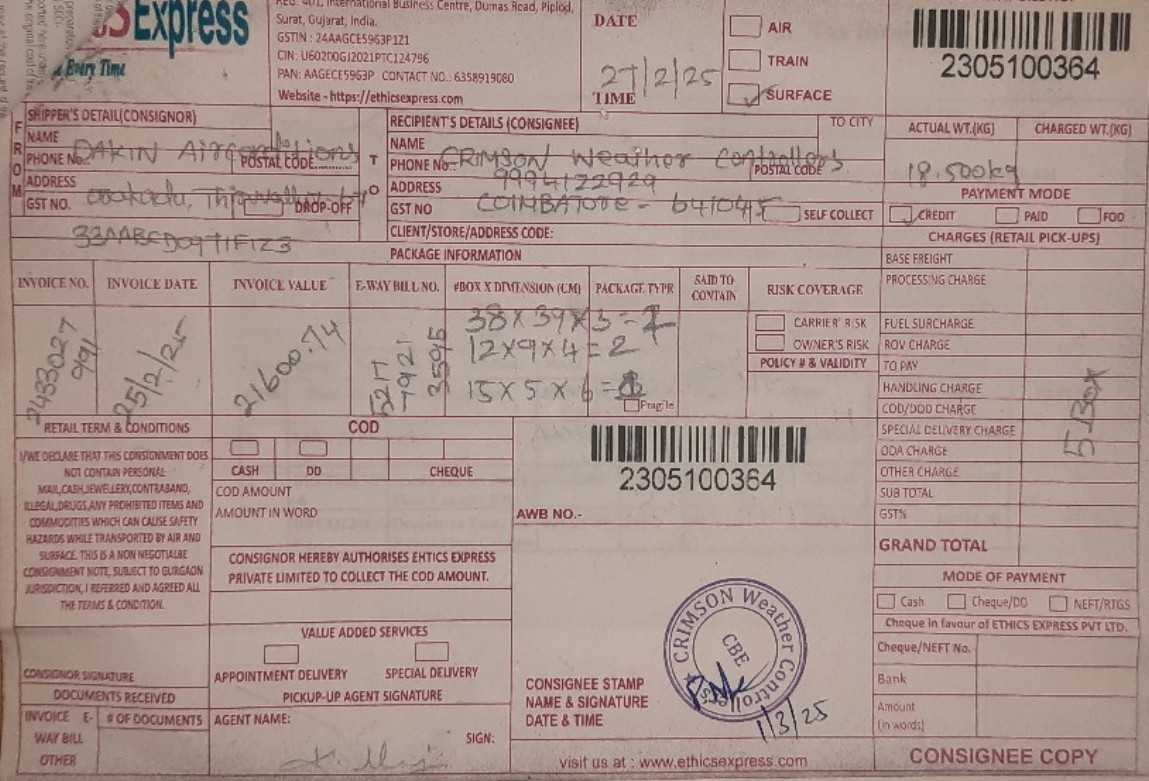 Express
Every Time
REG. 401, International Business Centre, Dumas Road, Piplod,
Surat, Gujarat, India.
GSTIN : 24AAGCE5963P1Z1
CIN: U60200GJ2021PTC124796
PAN: AAGECE5963P CONTACT NO.: 6358919080
Website - https://ethicsexpress.com
DATE
27/2/25
TIME
AIR
TRAIN
SURFACE
2305100364
FROM
SHIPPER'S DETAIL(CONSIGNOR)
NAME
PHONE No.
DAKIN
POSTAL CODE
ADDRESS
GST NO.
DROP-OFF
TO
RECIPIENT'S DETAILS (CONSIGNEE)
TO CITY
NAME
PHONE No.
CRIMSON Weather Controllers
POSTAL CODE
ADDRESS
9994122929
GST NO
COIMBATORE - 641045
SELF COLLECT
CLIENT/STORE/ADDRESS CODE:
ACTUAL WT.(KG)
CHARGED WT.(KG)
18.500kg
PAYMENT MODE
CREDIT
PAID
FOO
CHARGES (RETAIL PICK-UPS)
PACKAGE INFORMATION
INVOICE NO.
INVOICE DATE
INVOICE VALUE
E-WAY BILL NO.
#BOX X DIMENSION (CM)
PACKAGE TYPR
SAID TO CONTAIN
RISK COVERAGE
2433027
991
25/2/25
21600.74
5217
7921
3595
38 x 39 x 3 = 2
12 x 9 x 4 = 2
15 x 5 x 6 = 1
Fragile
CARRIER' RISK
OWNER'S RISK
POLICY # & VALIDITY
BASE FREIGHT
PROCESSING CHARGE
FUEL SURCHARGE
ROV CHARGE
TO PAY
HANDLING CHARGE
COD/DOD CHARGE
SPECIAL DELIVERY CHARGE
ODA CHARGE
OTHER CHARGE
SUB TOTAL
GST%
GRAND TOTAL
5 Box
RETAIL TERM & CONDITIONS
I/WE DECLARE THAT THIS CONSIGNMENT DOES
NOT CONTAIN PERSONAL
MAIL,CASH,JEWELLERY,CONTRABAND,
ILLEGAL,DRUGS,ANY PROHIBITED ITEMS AND
COMMODITIES WHICH CAN CAUSE SAFETY
HAZARDS WHILE TRANSPORTED BY AIR AND
SURFACE. THIS IS A NON NEGOTIALBE
CONSIGNMENT NOTE, SUBJECT TO GURGAON
JURISDICTION, I REFERRED AND AGREED ALL
THE TERMS & CONDITION.
COD
CASH
DD
CHEQUE
COD AMOUNT
AMOUNT IN WORD
CONSIGNOR HEREBY AUTHORISES EHTICS EXPRESS
PRIVATE LIMITED TO COLLECT THE COD AMOUNT.
2305100364
AWB NO.-
MODE OF PAYMENT
Cash
Cheque/DD
NEFT/RTGS
Cheque in favour of ETHICS EXPRESS PVT LTD.
Cheque/NEFT No.
Bank
Amount
(in words)
VALUE ADDED SERVICES
APPOINTMENT DELIVERY
SPECIAL DELIVERY
CONSIGNOR SIGNATURE
DOCUMENTS RECEIVED
PICKUP-UP AGENT SIGNATURE
INVOICE E-
WAY BILL
OTHER
# OF DOCUMENTS
AGENT NAME:
SIGN:
CRIMSON Weather Controllers
CBE
CONSIGNEE STAMP
NAME & SIGNATURE
DATE & TIME
1/3/25
visit us at : www.ethicsexpress.com
CONSIGNEE COPY